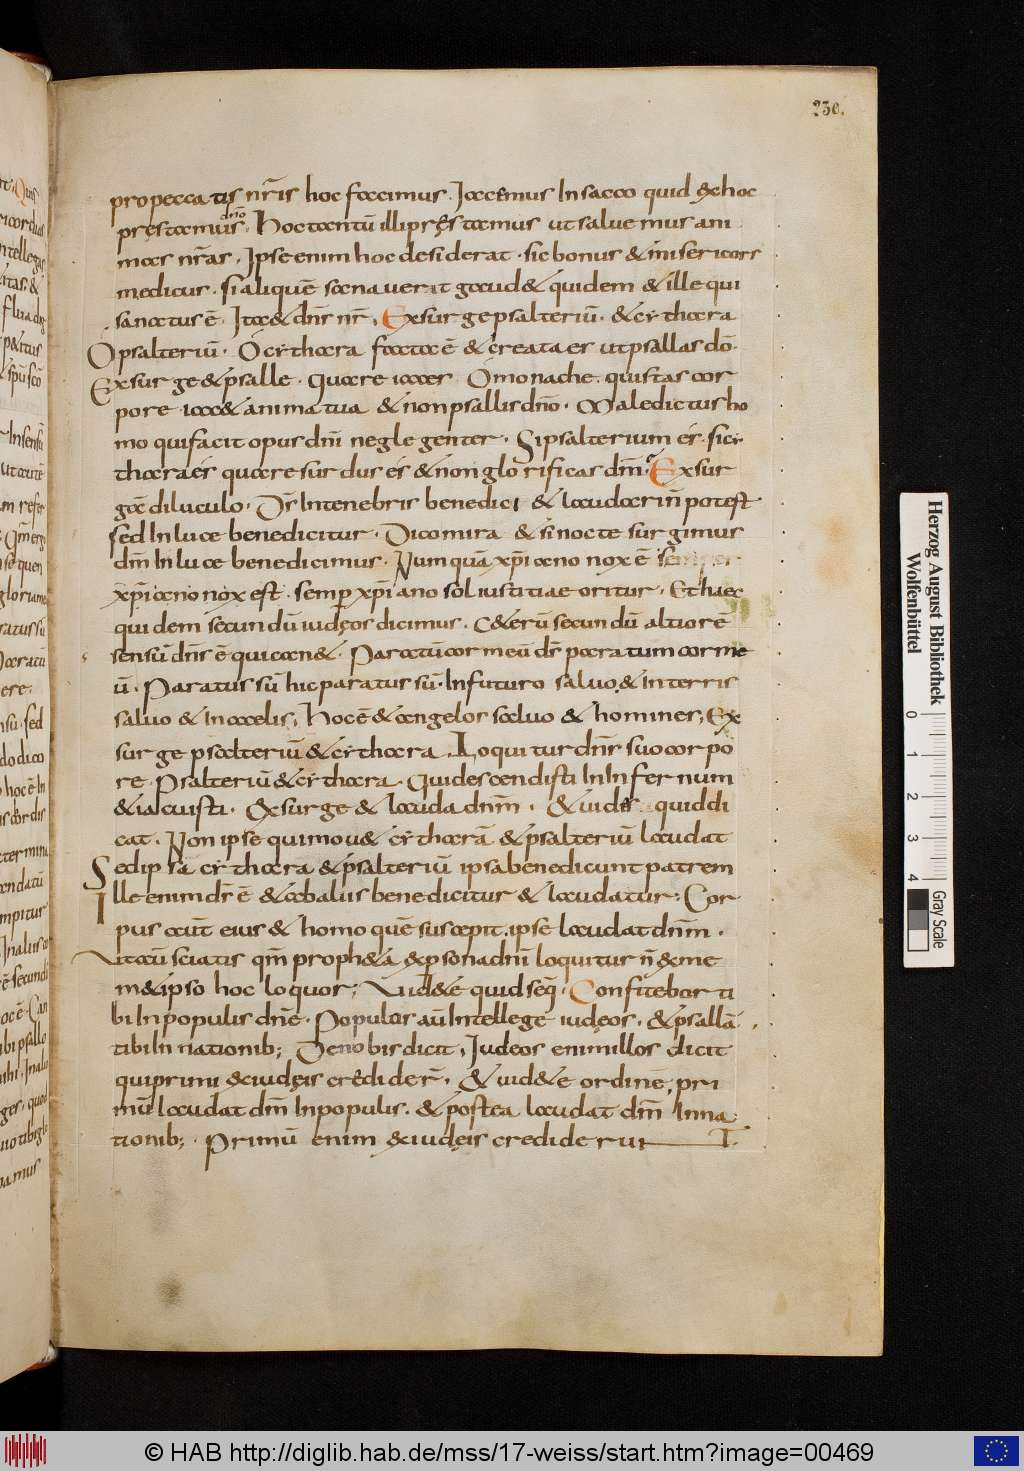 230.
pro peccatis nr̄is hoc facimus. Iacemus In sacco quid ex hoc
pręstamus dn̄o. Hoc tantū illi pręstamus ut saluemus ani
mas nr̄as. Ipse enim hoc desiderat. sic bonus & misericors
medicus. si aliquē sanauerit gaud& quidem & ille qui
sanatus ē. Ita & dn̄s nr̄. Exsurge psalteriū. & cythara
O psalteriū. O cythara facta ē & creata es ut psallas dō.
Exsurge & psalle. quare iaces O monache. quis tas cor
pore iac& anima tua & non psallis dn̄o. Maledictus ho
mo qui facit opus dn̄i neglegenter. Si psalterium es. si cy
thara es quare surdus es & non glorificas dn̄m. Exsur
gā diluculo. Dn̄s In tenebris benedici & laudari n̄ potest
sed In luce benedicitur. Dico mira & si nocte surgimus
dn̄m In luce benedicimus. Numquā xp̄iano nox ē semper
xp̄iano nox est. semp xp̄iano sol iustitiae oritur. Et haec
quidem secundū iudęos dicimus. C&erū secundū altiorē
sensū dn̄s ē qui can&. Paratū cor meū ds̄ paratum cor me
ū. Paratus sū hic paratus sū In futuro saluo & In terris
saluo & In caelis. Hoc ē & angelos saluo & homines; Ex
surge psalteriū & cythara. Loquitur dn̄s suo corpo
re. Psalteriū & cythara. Qui descendisti In Infernum
& iacuisti. Exsurge & lauda dn̄m. & uides quid di
cat. Non ipse qui mou& cytharā & psalteriū laudat
Sed ipsā cytharā & psalteriū ipsa benedicunt patrem
Ille enim ds̄ ē & ab aliis benedicitur & laudatur; Cor
pus aūt eius & homo quē suscepit. ipse laudat dn̄m.
Ut aūt sciatis qm̄ proph&a ex psona dn̄i loquitur n̄ ex me
m&ipso hoc loquor; Uid&e quid seq. Confitebor ti
bi In populis dn̄e. Populos aū Intellege iudęos. & psallā
tibi In nationib; De nobis dicit. Iudeos enim illos dicit
qui primi ex iudęis crediderꝛ. & uid&e ordinē, pri
mū laudat dm̄ In populis. & postea laudat dm̄ In na
tionib;. Primū enim ex iudęis crediderunt
Herzog August Bibliothek
Wolfenbüttel
0 1 2 3 4
Gray Scale
© HAB http://diglib.hab.de/mss/17-weiss/start.htm?image=00469